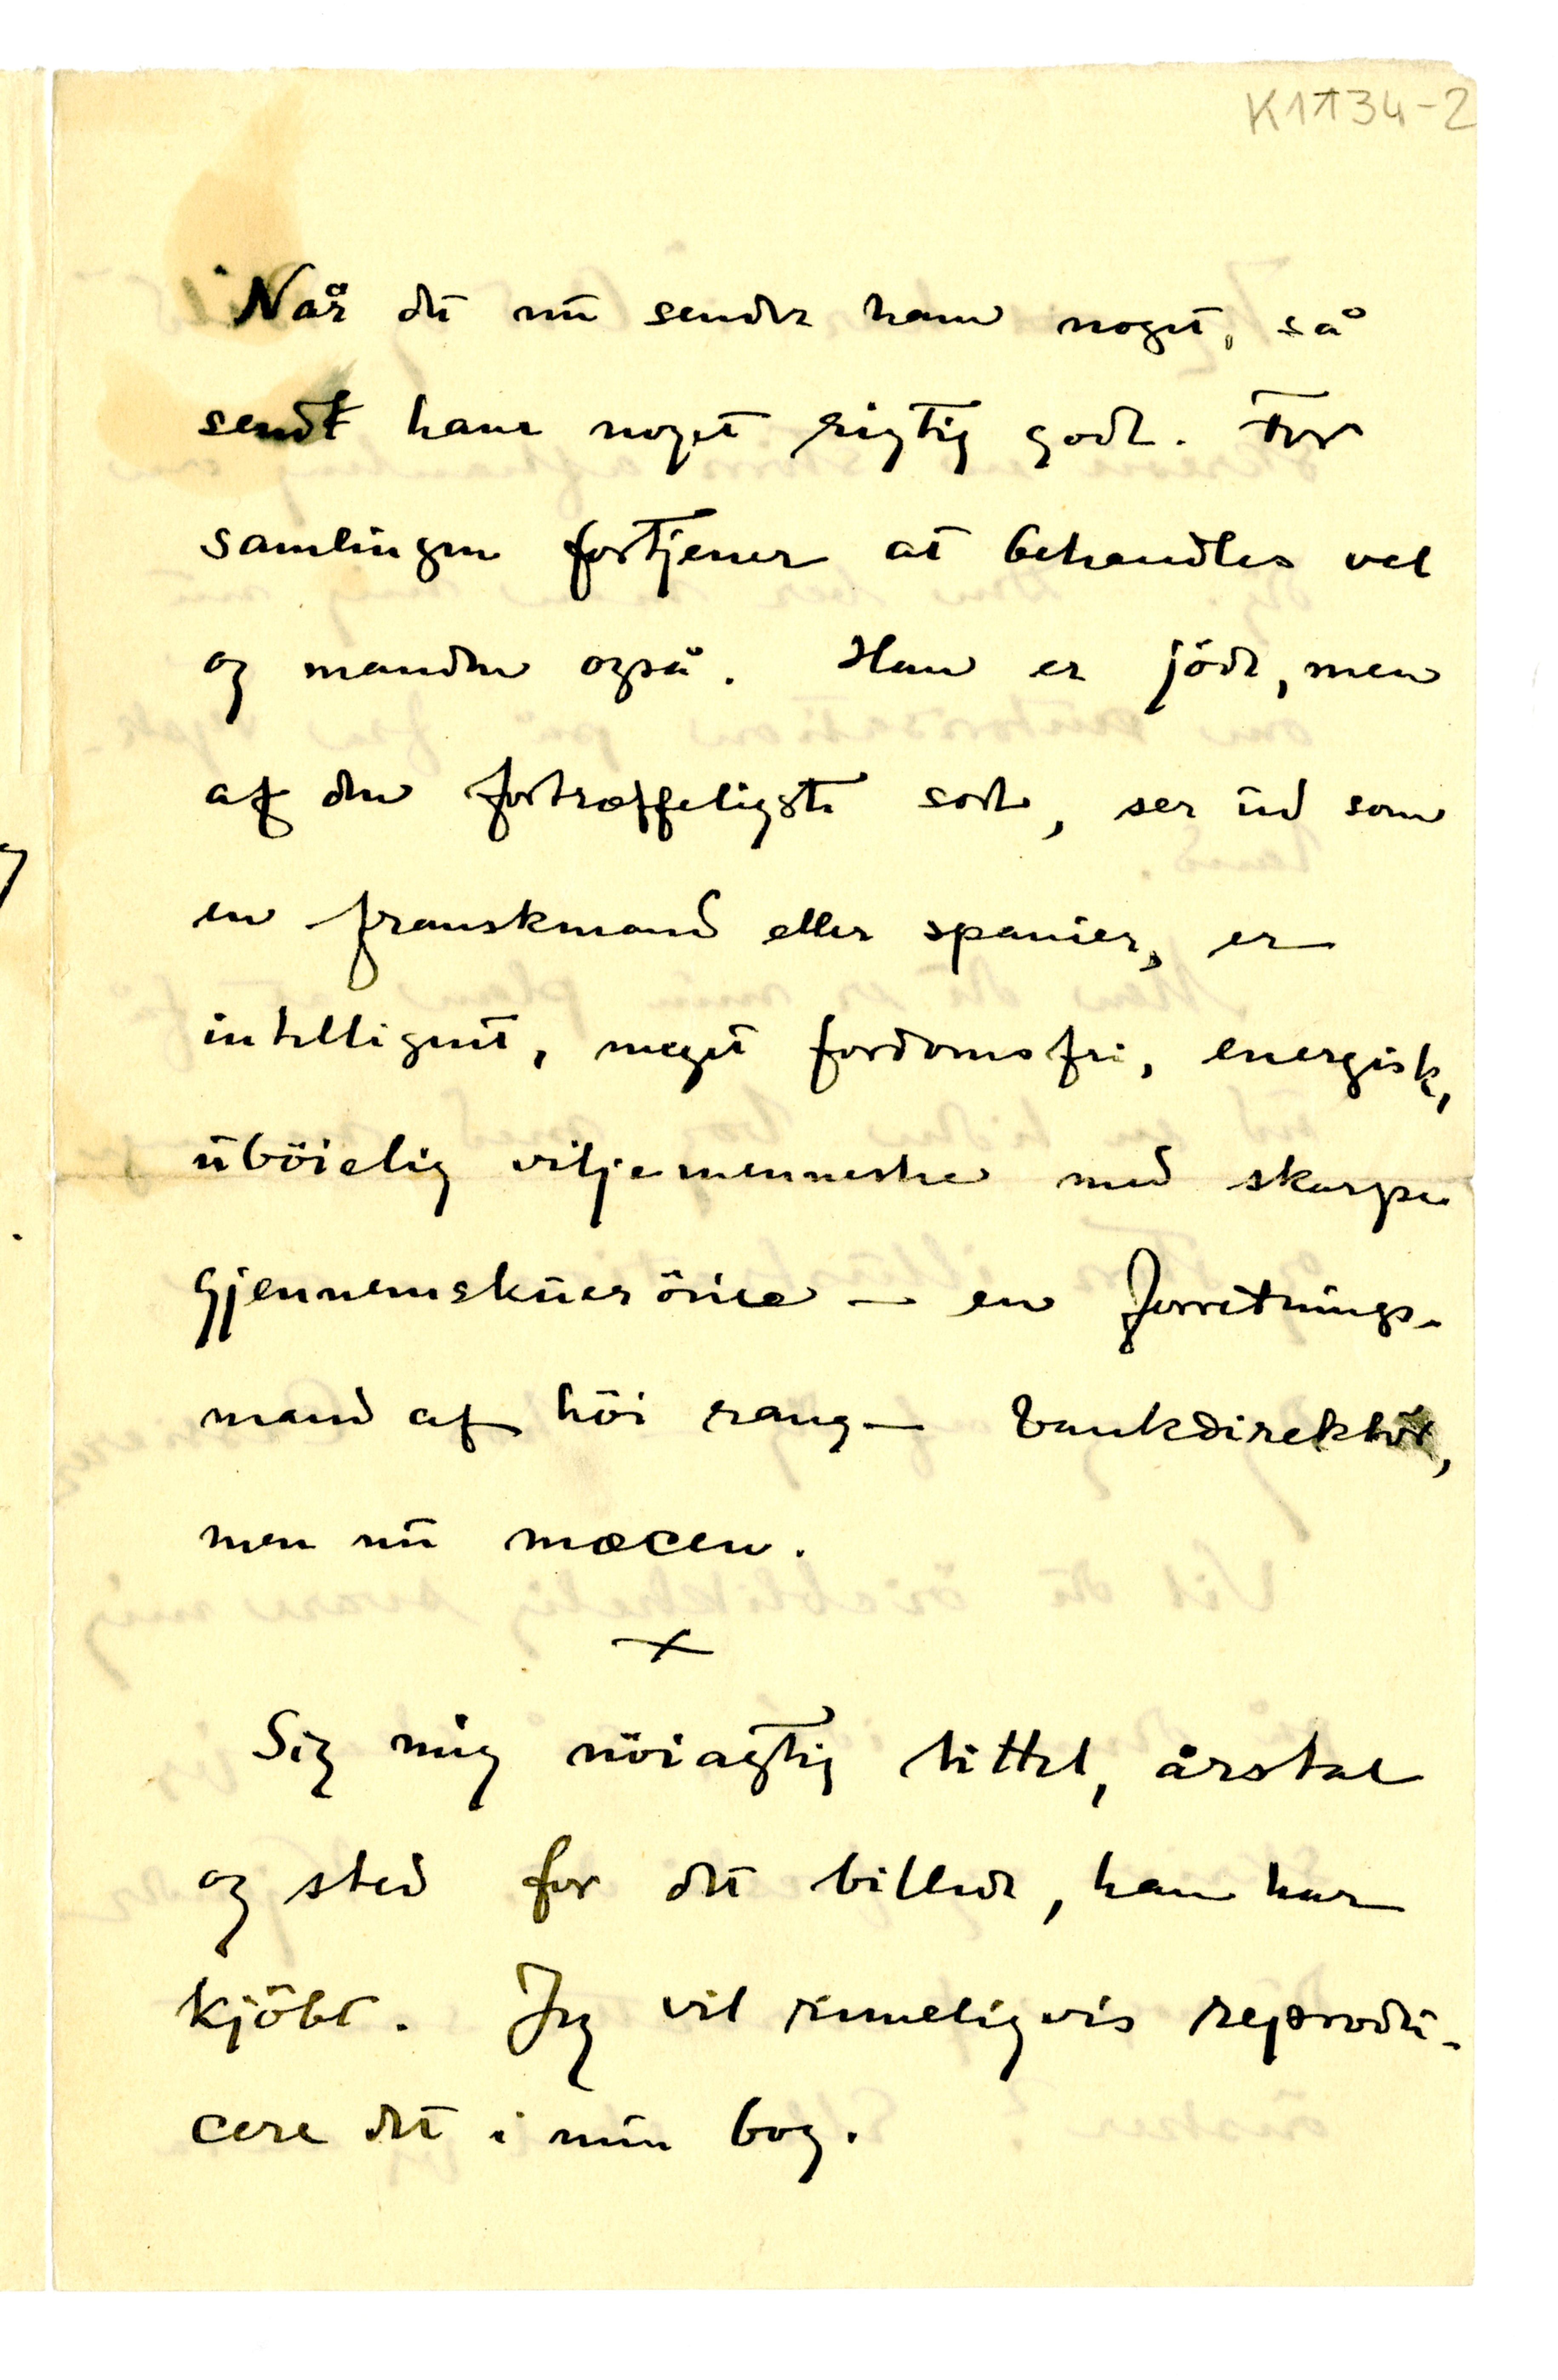 K1134-2
Når du nu sender ham noget, så
send ham noget rigtig godt. For
samlingen fortjener at behandles vel
og manden også. Han er jöde, men
af den fortræffeligste sort, ser ud som
en franskmand eller spanier, er
intelligent, meget fordomsfri, energisk,
uböielig viljemenneske med skarpe
gjennemskueröine — en forretnings-
mand af höi rang — bankdirektör,
men nu mæcen.
Sig mig nöiagtig tittel, årstal
og sted for det billede, han har
kjöbt. Jeg vil rimeligvis reprodu-
cere det i min bog.